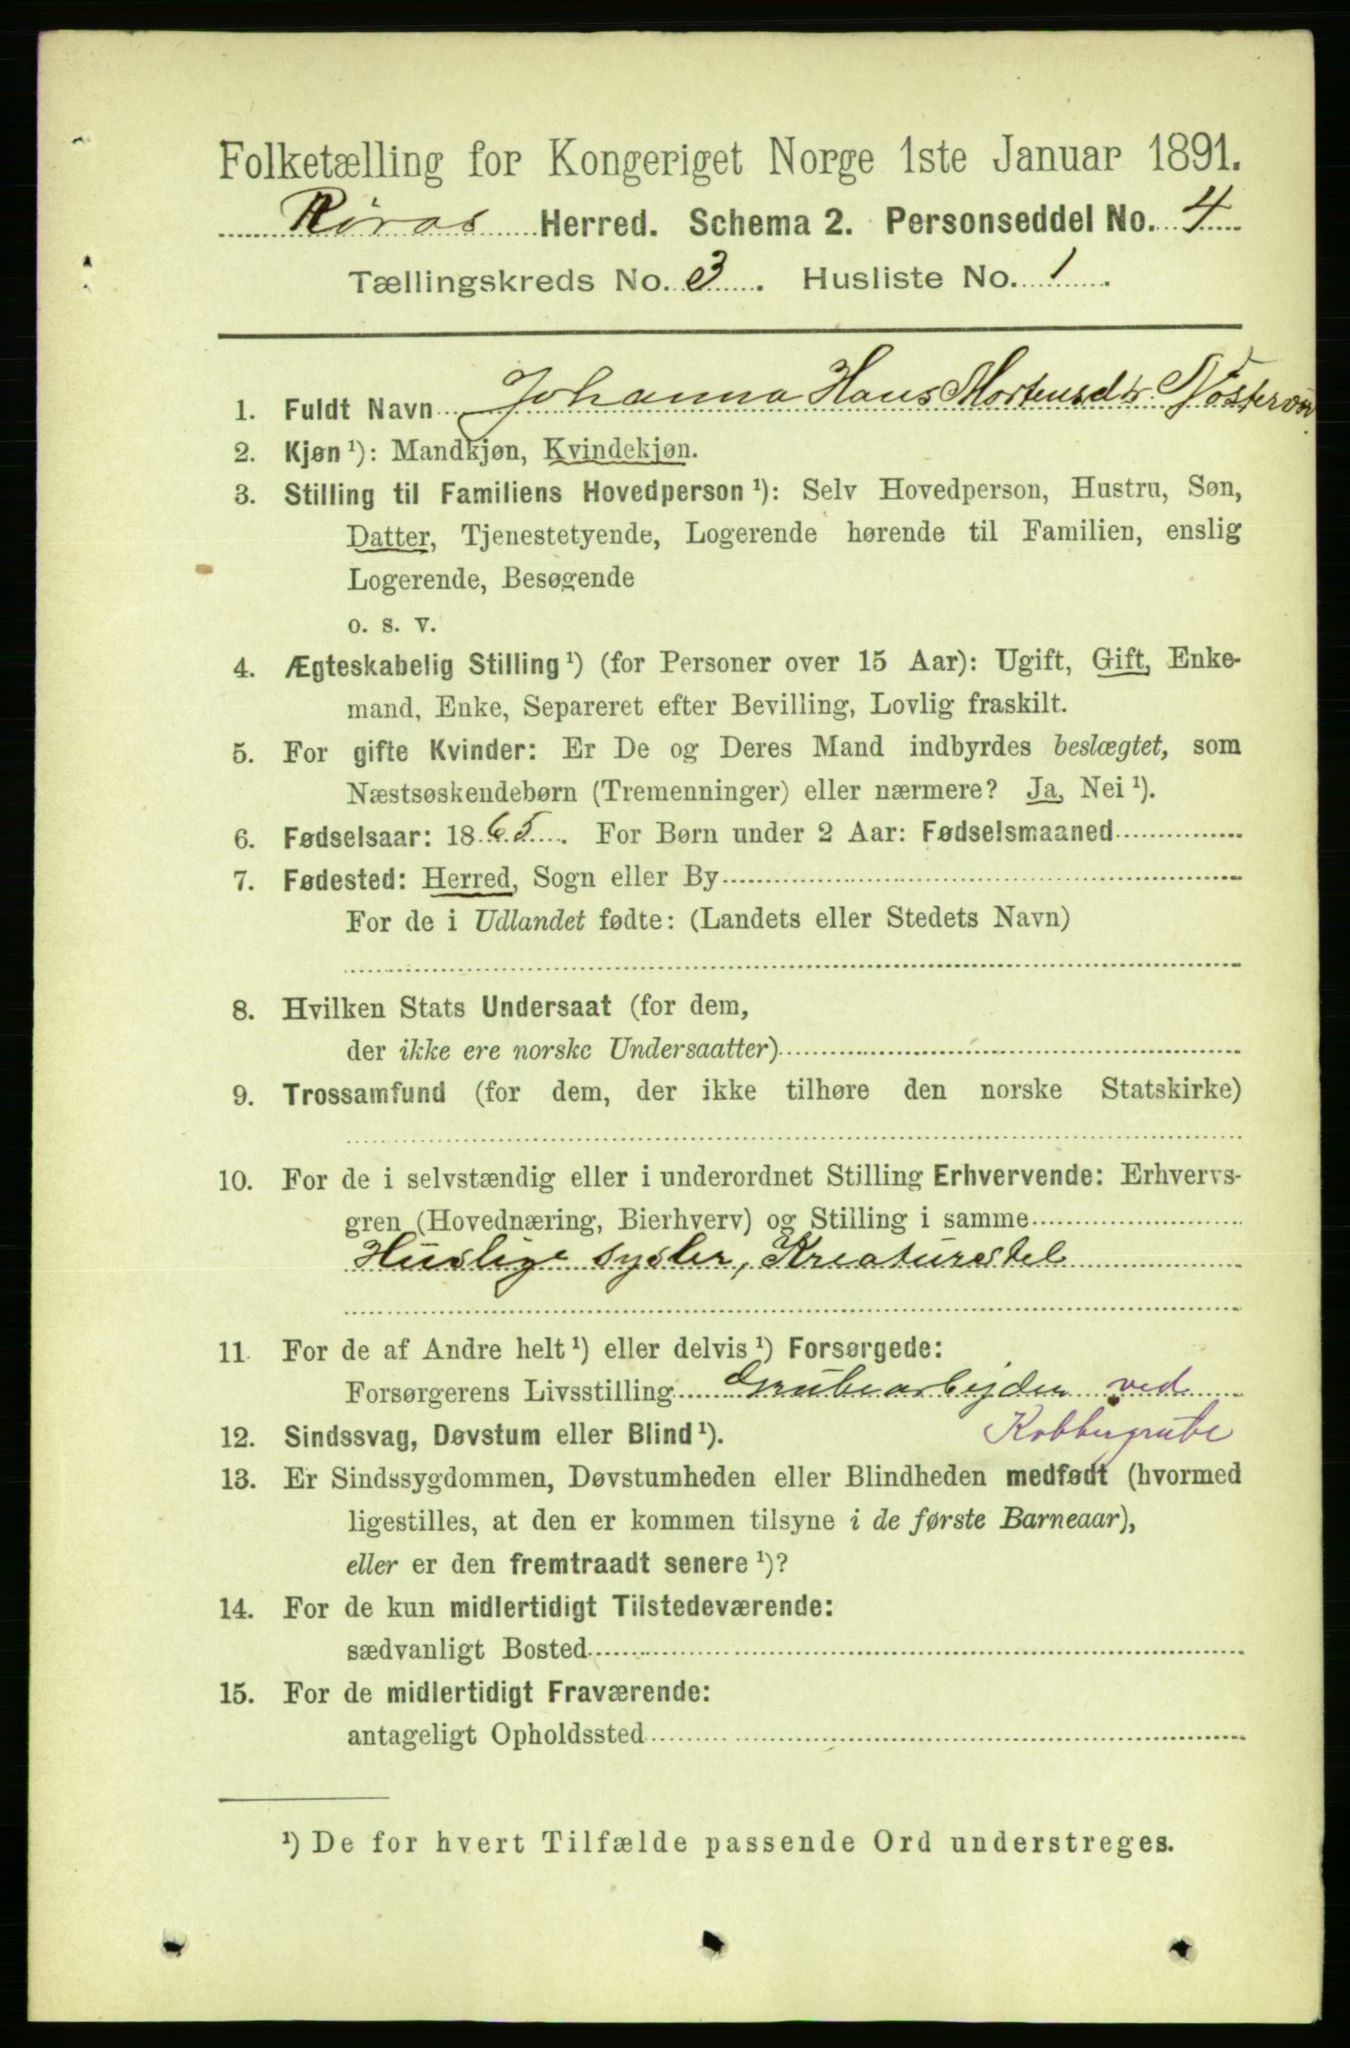 Folketælling for Kongeriget Norge 1ste Januar 1891.
Røros Herred. Schema 2. Personseddel No. 4
Tællingskreds No. 3. Husliste No. 1.
1. Fuldt Navn Johanna Hans Mortensdtr.
2. Kjøn ¹): Mandkjøn, Kvindekjøn.
3. Stilling til Familiens Hovedperson ¹): Selv Hovedperson, Hustru, Søn,
Datter, Tjenestetyende, Logerende hørende til Familien, enslig
Logerende, Besøgende
o. s. v.
4. Ægteskabelig Stilling ¹) (for Personer over 15 Aar): Ugift, Gift, Enke-
mand, Enke, Separeret efter Bevilling, Lovlig fraskilt.
5. For gifte Kvinder: Er De og Deres Mand indbyrdes beslægtet, som
Næstsøskendebørn (Tremenninger) eller nærmere? Ja, Nei ¹).
6. Fødselsaar: 1865. For Børn under 2 Aar: Fødselsmaaned
7. Fødested: Herred, Sogn eller By
For de i Udlandet fødte: (Landets eller Stedets Navn)
8. Hvilken Stats Undersaat (for dem,
der ikke ere norske Undersaatter)
9. Trossamfund (for dem, der ikke tilhøre den norske Statskirke)
10. For de i selvstændig eller i underordnet Stilling Erhvervende: Erhvervs-
gren (Hovednæring, Bierhverv) og Stilling i samme
Huslige sysler, Kreaturstel
11. For de af Andre helt ¹) eller delvis ¹) Forsørgede:
Forsørgerens Livsstilling Grubearbejder ved
Kobbergrube
12. Sindssvag, Døvstum eller Blind ¹).
13. Er Sindssygdommen, Døvstumheden eller Blindheden medfødt (hvormed
ligestilles, at den er kommen tilsyne i de første Barneaar),
eller er den fremtraadt senere ¹)?
14. For de kun midlertidigt Tilstedeværende:
sædvanligt Bosted
15. For de midlertidigt Fraværende:
antageligt Opholdssted
¹) De for hvert Tilfælde passende Ord understreges.